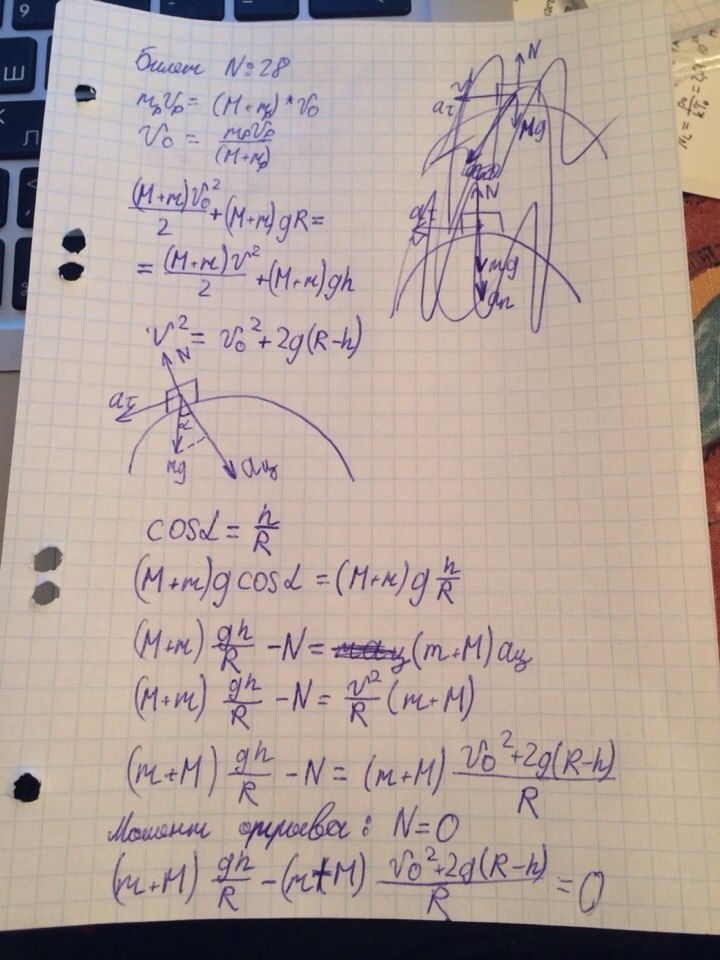 Билет №28
mₚvₚ = (M+mₚ)*v₀
v₀ = mₚvₚ/(M+mₚ)
(M+m)v₀²/2 + (M+m)gR =
= (M+m)v²/2 + (M+m)gh
v² = v₀² + 2g(R-h)
N
v
aτ
Mg
N
mg
N
aτ
α
mg
aц
cosα = h/R
(M+m)g cosα = (M+m)g h/R
(M+m) gh/R - N = (m+M)aц
(M+m) gh/R - N = v²/R (m+M)
(m+M) gh/R - N = (m+M) v₀²+2g(R-h)/R
Момент отрыва: N=0
(m+M) gh/R - (m+M) v₀²+2g(R-h)/R = 0
9
Ш
Л